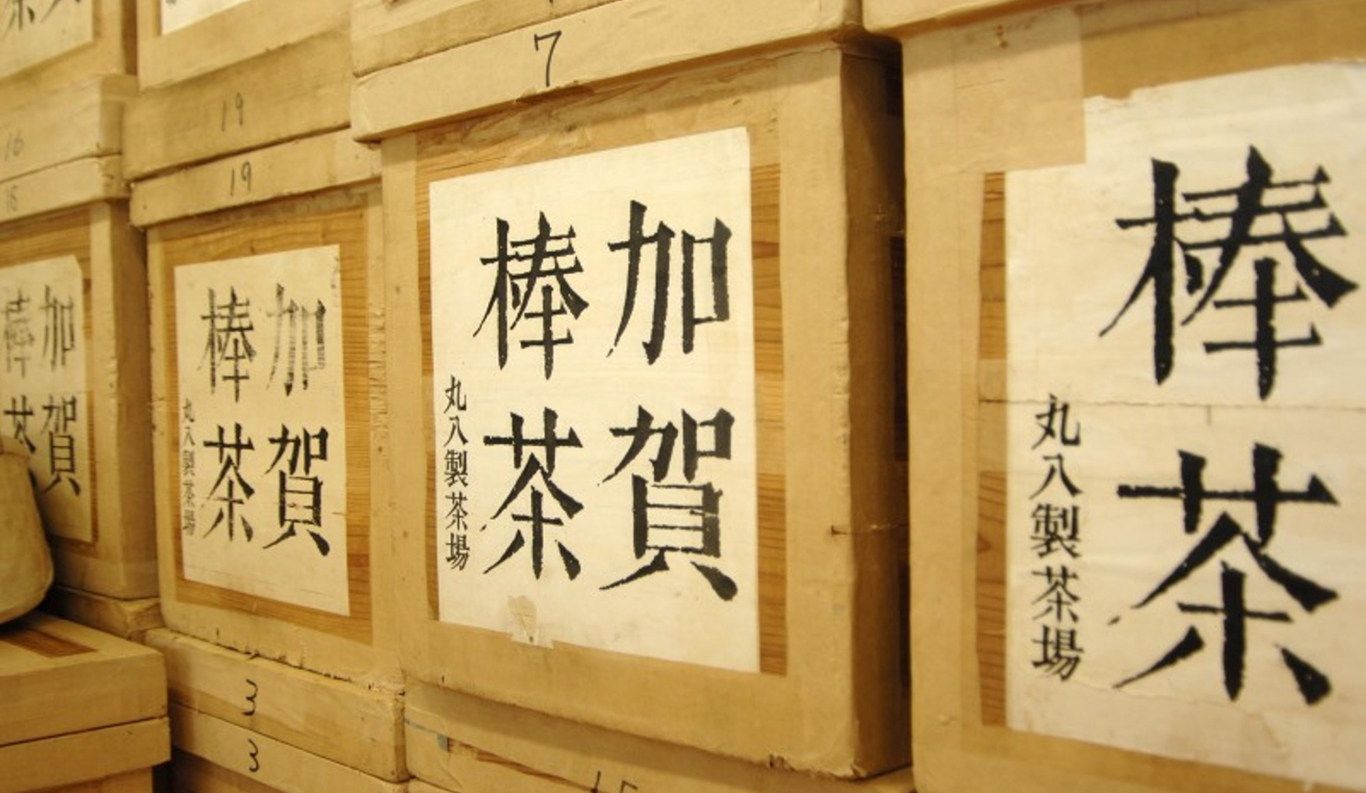 16
16
19
19
加賀
棒茶
丸八製茶場
3
3
7
加賀
棒茶
丸八製茶場
15
棒茶
丸八製茶場
加賀
棒茶